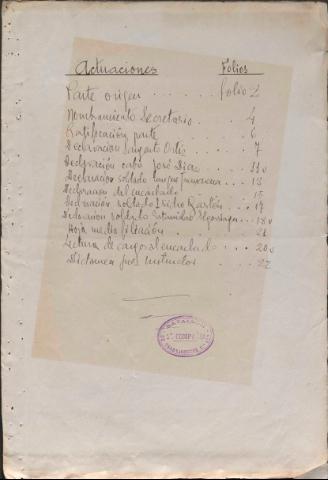 Actuaciones Folios
Parte origen folio 2
Nombramiento Secretario 4
Ratificación parte 6
Declaración Sargento Ortiz 7
Declaración cabo José Diaz 11v
Declaración soldado 13
Declaración del encartado 15
Declaración soldado Isidro 17
Declaración soldado Saturnino 18v
Hoja media filiación 21
Lectura de cargos al encartado 20v
Dictamen por instructor 22